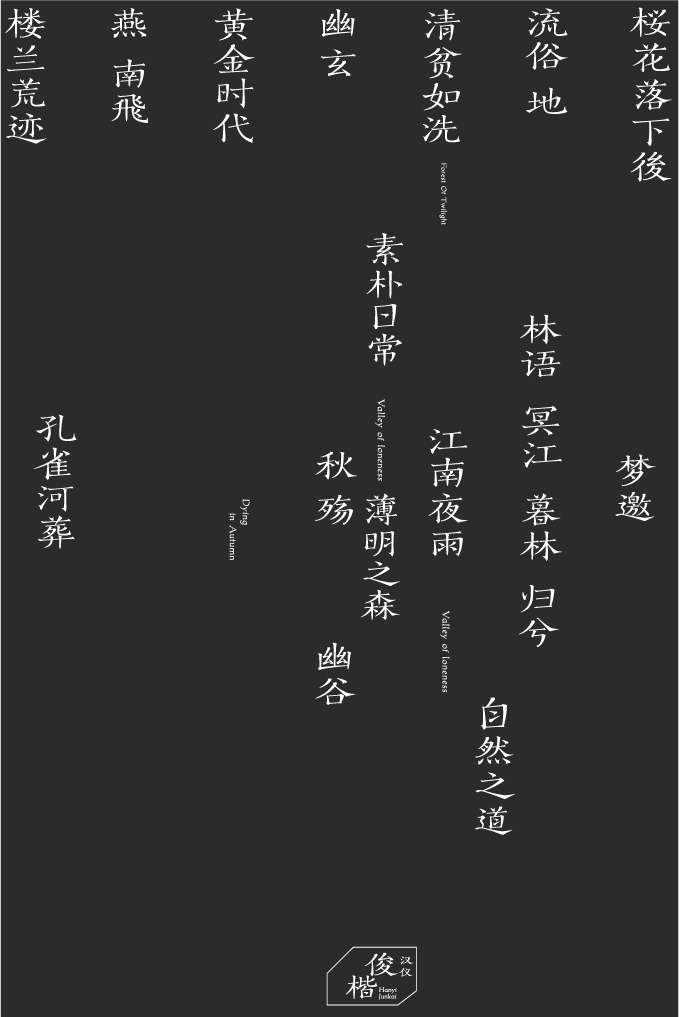 桜花落下後
梦邀
流俗 地
林语 冥江 暮林 归兮
自然之道
清贫如洗
Forest Of Twilight
江南夜雨
Valley of loneness
素朴日常
Valley of loneness
薄明之森
幽玄
秋殇
幽谷
黄金时代
Dying
in Autumn
燕 南飛
楼兰荒迹
孔雀河葬
汉仪
俊楷
Hanyi
Junkai